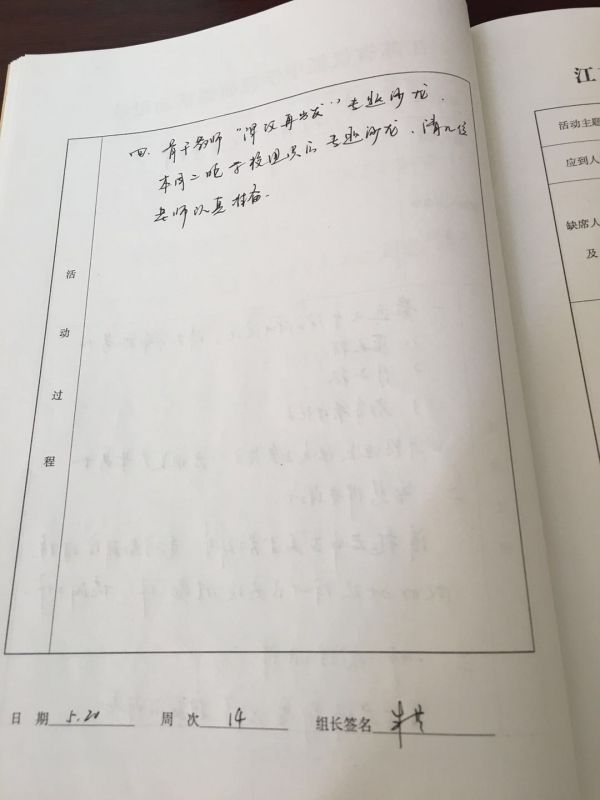 四、骨干教师“課改再出发”专题沙龙.
本周二晚学校组织了专题沙龙,请几位
老师认真准备.
活动过程
日 期 5.20 周 次 14 组长签名
江
活动主题
应到人
缺席人
及